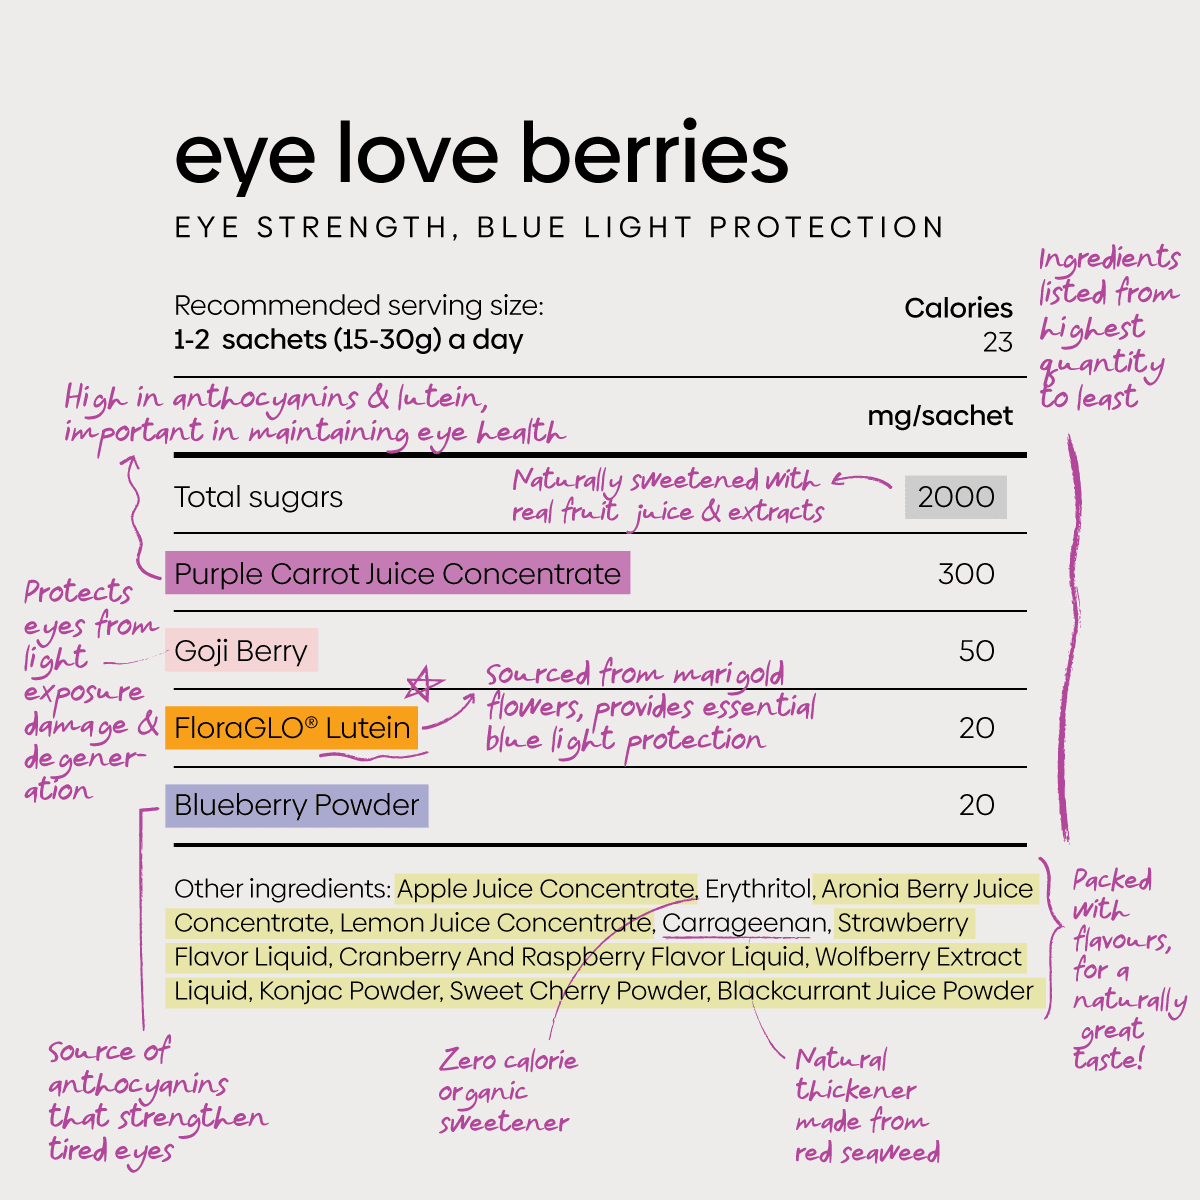 eye love berries
EYE STRENGTH, BLUE LIGHT PROTECTION
Recommended serving size:
1-2 sachets (15-30g) a day
Calories
23
Ingredients
listed from
highest
quantity
to least
High in anthocyanins & lutein,
important in maintaining eye health
mg/sachet
Total sugars
Naturally sweetened with
real fruit juice & extracts
2000
Purple Carrot Juice Concentrate
300
Protects
eyes from
light
exposure
damage &
degener-
ation
Goji Berry
50
FloraGLO® Lutein
Sourced from marigold
flowers, provides essential
blue light protection
20
Blueberry Powder
20
Other ingredients: Apple Juice Concentrate, Erythritol, Aronia Berry Juice
Concentrate, Lemon Juice Concentrate, Carrageenan, Strawberry
Flavor Liquid, Cranberry And Raspberry Flavor Liquid, Wolfberry Extract
Liquid, Konjac Powder, Sweet Cherry Powder, Blackcurrant Juice Powder
Packed
with
flavours,
for a
naturally
great
taste!
Source of
anthocyanins
that strengthen
tired eyes
Zero calorie
organic
sweetener
Natural
thickener
made from
red seaweed